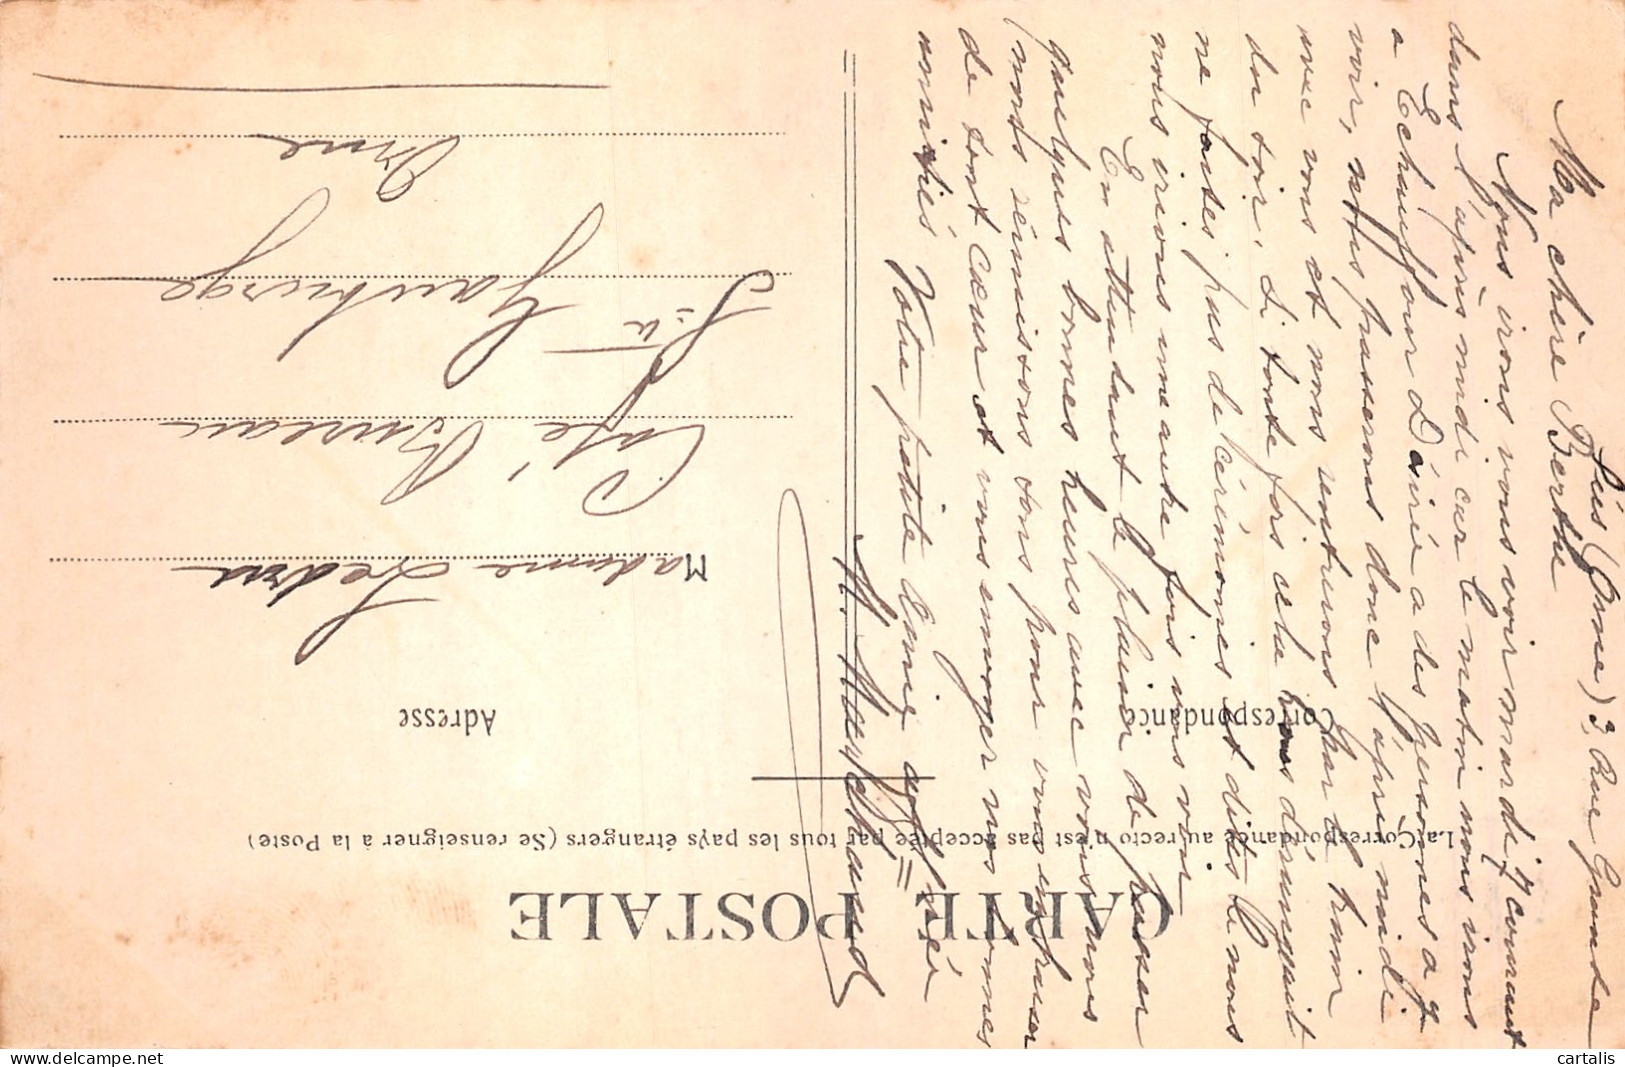 CARTE POSTALE
La Correspondance au recto n'est pas acceptée par tous les pays étrangers (Se renseigner à la Poste)
Correspondance
Adresse
Madame Ledru
Café Bureau
Gauburge
Orne
(Orne) 3, Rue Grande
Ma chère Berthe
Nous irons vous voir mardi 7 courant
dans l'après midi car le matin nous irons
a Echauffour Désiré a des personnes a y
voir, nous passerons donc l'après midi
avec vous et nous rentrerons par le train
du soir. Si toute fois cela vous dérangeait
ne faites pas de cérémonies et dites le nous
nous irions une autre fois vous voir
En attendant le plaisir de passer
quelques bonnes heures avec vous nous
nous réunissons tous pour vous embrasser
de tout cœur et vous envoyer nos bonnes
amitiés Votre petite amie
cartalis